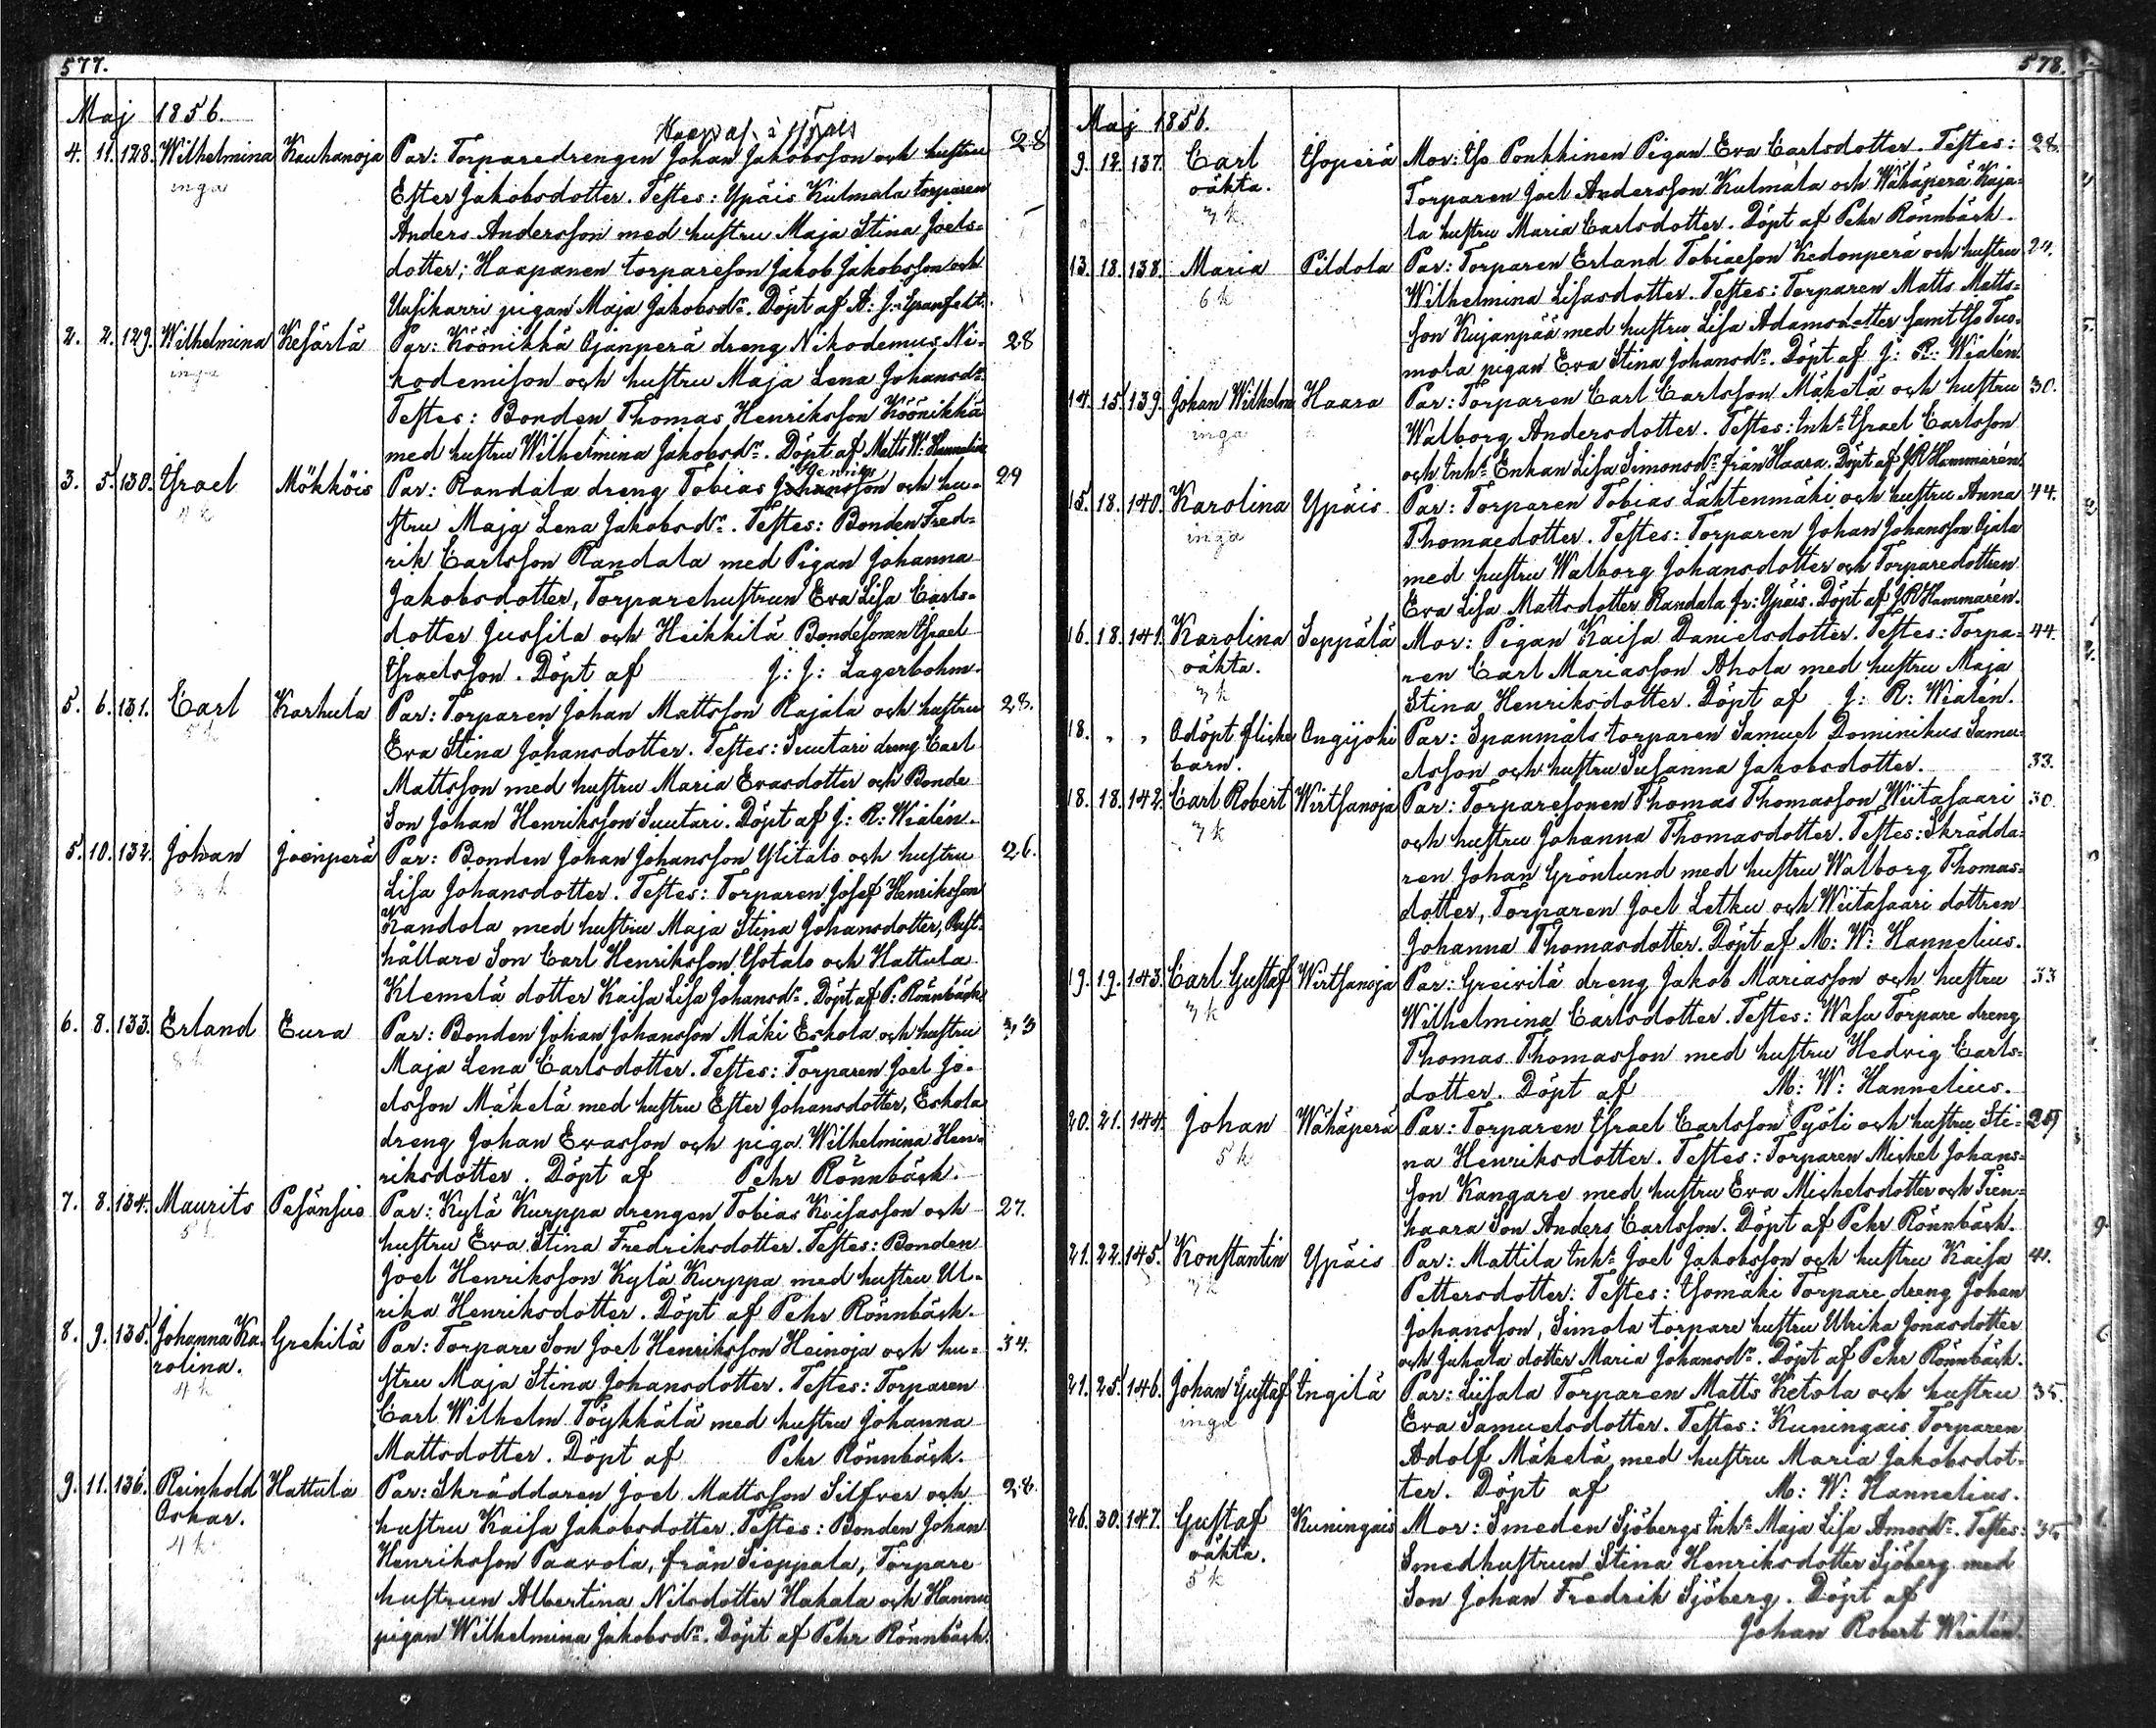 577.
Maj 1856.
4. 11. 128. Wilhelmina Kauhanoja Par: Torparedrengen Johan Jakobsson och hustru 28
inga Ester Jakobsdotter. Testes: Ypäis Kulmala torparen
Anders Andersson med hustru Maja Stina Joels-
dotter; Haapanen torpareson Jakob Jakobsson och
Uusikarri pigan Maja Jakobsdr. Döpt af A: J: Granfelt.
2. 2. 129. Wilhelmina Kesärlä Par: Köönikkä Ojanperä dreng Nikodemus Ni- 28
inga kodemison och hustru Maja Lena Johansdr.
Testes: Bonden Thomas Henriksson Köönikkä
med hustru Wilhelmina Jakobsdr. Döpt af Matts W: Hannelius
3. 5. 130. Israel Mökköis Par: Randala dreng Tobias Henriksson och hu- 29
4 k stru Maja Lena Jakobsdr. Testes: Bonden Fred-
rik Carlsson Randala med Pigan Johanna
Jakobsdotter, Torparehustrun Eva Lisa Carls-
dotter Jussila och Heikkilä Bondesonen Israel
Israelsson. Döpt af J: J: Lagerbohm.
5. 6. 131. Carl Karhula Par: Torparen Johan Mattsson Rajala och hustru 28.
5 k Eva Stina Johansdotter. Testes: Suutari dreng Carl
Mattsson med hustru Maria Evasdotter och Bonde
Son Johan Henriksson Suutari. Döpt af J: R: Wialén.
5. 10. 132. Johan Joenperä Par: Bonden Johan Johansson Ylitalo och hustru 26.
Lisa Johansdotter. Testes: Torparen Josef Henriksson
Kandola med hustru Maja Stina Johansdotter, Rust-
hållare Son Carl Henriksson Isotalo och Hattula
Klemelä dotter Kaisa Lisa Johansdr. Döpt af P: Rönnbäck.
6. 8. 133. Erland Eura Par: Bonden Johan Johansson Mäki Eskola och hustru
8 k Maja Lena Carlsdotter. Testes: Torparen Joel Jo-
elsson Mäkelä med hustru Ester Johansdotter, Eskola
dreng Johan Evasson och piga Wilhelmina Hen-
riksdotter. Döpt af Pehr Rönnbäck.
7. 8. 134. Maurits Pesänsuo Par: Kylä Kurppa drengen Tobias Kaisasson och 27.
hustru Eva Stina Fredriksdotter. Testes: Bonden
Joel Henriksson Kylä Kurppa med hustru Ul-
rika Henriksdotter. Döpt af Pehr Rönnbäck.
8. 9. 135. Johanna Ka- Grekilä Par: Torpare Son Joel Henriksson Heinoja och hu- 34.
rolina. stru Maja Stina Johansdotter. Testes: Torparen
4 k Carl Wilhelm Töykkälä med hustru Johanna
Mattsdotter. Döpt af Pehr Rönnbäck.
9. 11. 136. Reinhold Hattula Par: Skräddaren Joel Mattsson Silfver och 28.
Oskar. hustru Kaisa Jakobsdotter. Testes: Bonden Johan
4 k Henriksson Paavola, från Sieppala, Torpare
hustrun Albertina Nilsdotter Hakala och Hannu
pigan Wilhelmina Jakobsdr. Döpt af Pehr Rönnbäck.
578.
Maj 1856.
9. 12. 137. Carl Isoperä Mor: Iso Ponkkinen Pigan Eva Carlsdotter. Testes: 28.
oäkta. Torparen Joel Andersson Kulmala och Wähäperä Kaja-
7 k la hustru Maria Carlsdotter. Döpt af Pehr Rönnbäck.
13. 18. 138. Maria Pildola Par: Torparen Erland Tobiaeson Kedonperä och hustru 24.
6 k Wilhelmina Lisasdotter. Testes: Torparen Matts Matts-
son Kujanpää med hustru Lisa Adamsdotter samt Iso Tuo-
mola pigan Eva Stina Johansdr. Döpt af J: R: Wialén.
14. 15. 139. Johan Wilhelm Haara Par: Torparen Carl Carlsson Mäkelä och hustru 30.
inga Walborg Andersdotter. Testes: Inhs Israel Carlsson
och Inhs Enkan Lisa Simonsdr från Haara. Döpt af J R Hammarén.
15. 18. 140. Karolina Ypäis Par: Torparen Tobias Lähtenmäki och hustru Anna 44.
inga Thomaedotter. Testes: Torparen Johan Johansson Ojala
med hustru Walborg Johansdotter och Torparedottren
Eva Lisa Mattsdotter Randala fr: Ypäis. Döpt af J R Hammarén.
16. 18. 141. Karolina Seppälä Mor: Pigan Kaisa Danielsdotter. Testes: Torpa- 44.
oäkta. ren Carl Mariasson Ahola med hustru Maja
7 k Stina Henriksdotter. Döpt af J: R: Wialén.
18. " " Odöpt flicke Ongijoki Par: Spanmåls torparen Samuel Dominikus Samu-
barn. elsson och hustru Susanna Jakobsdotter. 33.
18. 18. 142. Carl Robert Wirtsanoja Par: Torparesonen Thomas Thomasson Wiitasaari 30.
7 k och hustru Johanna Thomasdotter. Testes: Skrädda-
ren Johan Grönlund med hustru Walborg Thomas-
dotter, Torparen Joel Letku och Wiitasaari dottren
Johanna Thomasdotter. Döpt af M: W: Hannelius.
19. 19. 143. Carl Gustaf Wirtsanoja Par: Greivilä dreng Jakob Mariasson och hustru 33
7 k Wilhelmina Carlsdotter. Testes: Wasu Torpare dreng
Thomas Thomasson med hustru Hedvig Carls-
dotter. Döpt af M: W: Hannelius.
20. 21. 144. Johan Wähäperä Par: Torparen Israel Carlsson Pyöli och hustru Sti- 29
5 k na Henriksdotter. Testes: Torparen Mickel Johans-
son Kangare med hustru Eva Michelsdotter och Tien-
haara Son Anders Carlsson. Döpt af Pehr Rönnbäck.
21. 22. 145. Konstantin Ypäis Par: Mattila Inhs Joel Jakobsson och hustru Kaisa 41.
7 k Pettersdotter. Testes: Isomäki Torpare dreng Johan
Johansson, Simola torpare hustru Ulrika Jonasdotter
och Juhala dotter Maria Johansdr. Döpt af Pehr Rönnbäck.
21. 25. 146. Johan Gustaf Ingilä Par: Liisala Torparen Matts Ketola och hustru 35.
inga Eva Samuelsdotter. Testes: Kuningais Torparen
Adolf Mäkelä med hustru Maria Jakobsdot-
ter. Döpt af M: W: Hannelius.
26. 30. 147. Gustaf Kuningais Mor: Smeden Sjöbergs Inhe Maja Lisa Amosdr. Testes: 35
oäkta. Smedhustrun Stina Henriksdotter Sjöberg med
5 k Son Johan Fredrik Sjöberg. Döpt af
Johan Robert Wialén.